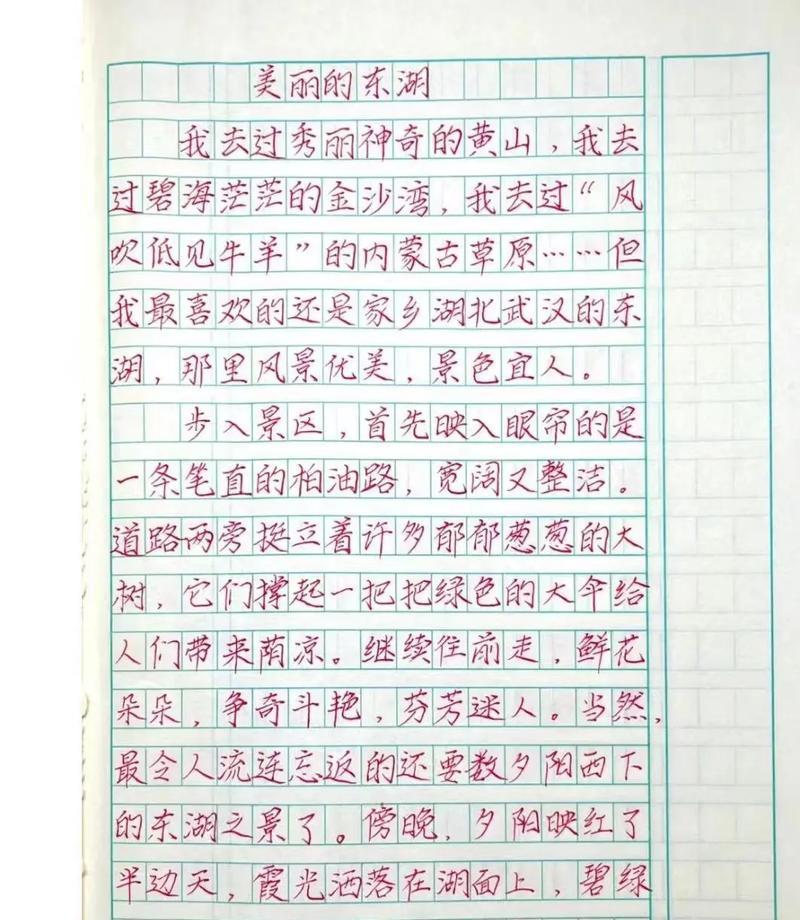 美丽的东湖
我去过秀丽神奇的黄山，我去
过碧海茫茫的金沙湾，我去过“风
吹低见牛羊”的内蒙古草原……但
我最喜欢的还是家乡湖北武汉的东
湖，那里风景优美，景色宜人。
步入景区，首先映入眼帘的是
一条笔直的柏油路，宽阔又整洁。
道路两旁挺立着许多郁郁葱葱的大
树，它们撑起一把把绿色的大伞给
人们带来荫凉。继续往前走，鲜花
朵朵，争奇斗艳，芬芳迷人。当然，
最令人流连忘返的还要数夕阳西下
的东湖之景了。傍晚，夕阳映红了
半边天，霞光洒落在湖面上，碧绿